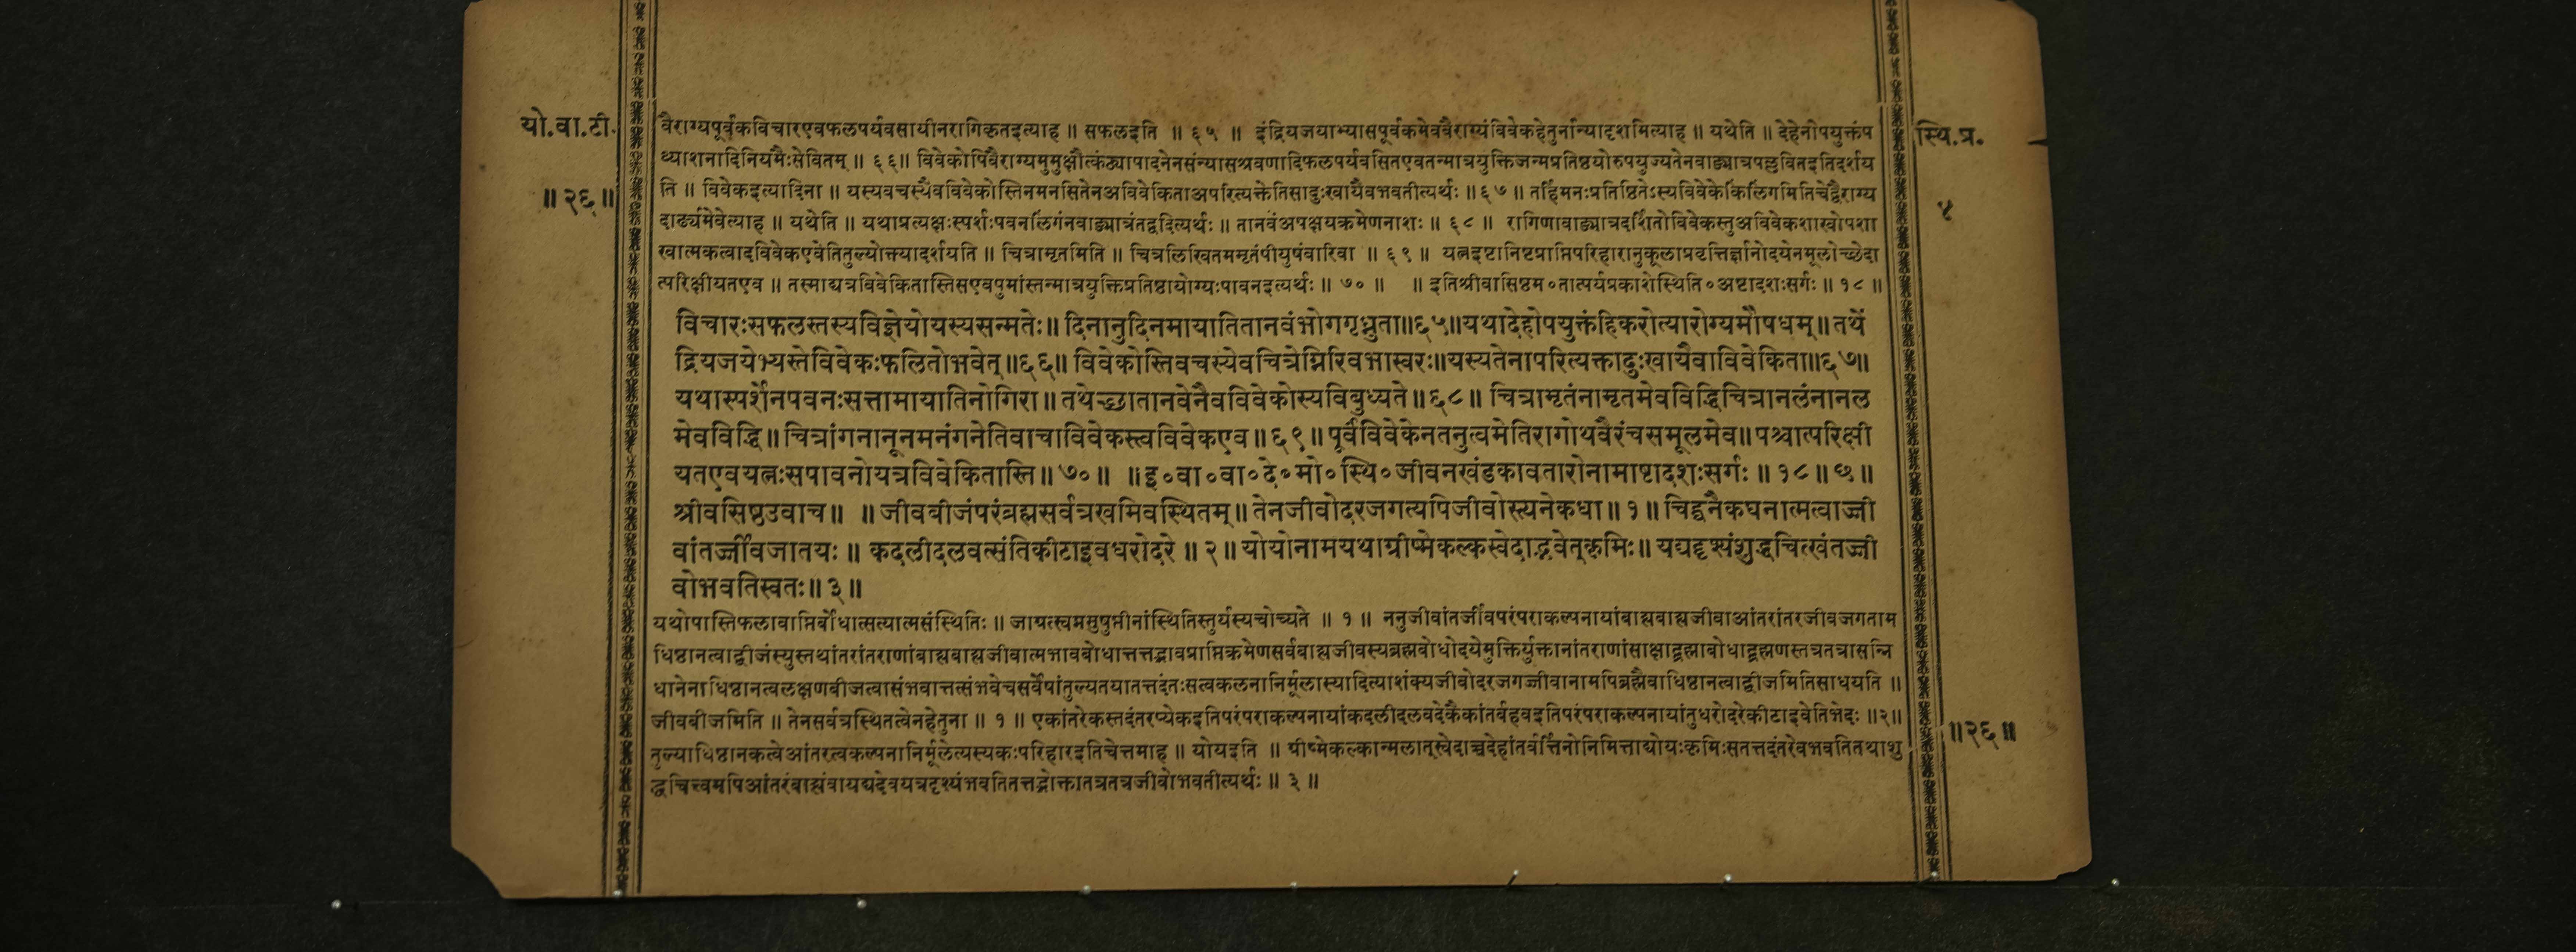 यो.वा.टी.
॥२६॥
वैराग्यपूर्वकविचारएवफलपर्यवसायीनरागिकृतइत्याह ॥ सफलइति ॥ ६५ ॥ इंद्रियजयाभ्यासपूर्वकमेववैराग्यंविवेकहेतुर्नान्यादृशमित्याह ॥ यथेति ॥ देहेनोपयुक्तंप
थ्याशनादिनियमैःसेवितम् ॥ ६६॥ विवेकोपिवैराग्यमुमुक्षौत्कंठ्यापादनेनसंन्यासश्रवणादिफलपर्यवसितएवतन्मात्रयुक्तिजन्मप्रतिष्ठयोरुपयुज्यतेनवाङ्मात्रपल्लवितइतिदर्शय
ति ॥ विवेकइत्यादिना ॥ यस्यवचस्यैवविवेकोस्तिनमनसितेनअविवेकिताअपरित्यक्तेतिसादुःखायैवभवतीत्यर्थः ॥६७॥ तर्हिमनःप्रतिष्ठितेऽस्यविवेकेकिंलिंगमितिचेद्वैराग्य
दार्ढ्यमेवेत्याह ॥ यथेति ॥ यथाप्रत्यक्षःस्पर्शःपवनलिंगंनवाङ्मात्रंतद्वदित्यर्थः ॥ तानवंअपक्षयक्रमेणनाशः ॥ ६८ ॥ रागिणावाङ्मात्रदर्शितोविवेकस्तुअविवेकशाखोपशा
खात्मकत्वादविवेकएवेतितुल्योक्त्यादर्शयति ॥ चित्रामृतमिति ॥ चित्रलिखितममृतंपीयुषंवारिवा ॥ ६९ ॥ यत्नइष्टानिष्टप्राप्तिपरिहारानुकूलाप्रवृत्तिर्ज्ञानोदयेनमूलोच्छेदा
त्परिक्षीयतएव ॥ तस्माद्यत्रविवेकितास्तिसएवपुमांस्तन्मात्रयुक्तिप्रतिष्ठायोग्यःपावनइत्यर्थः ॥ ७० ॥ ॥ इतिश्रीवासिष्ठम॰तात्पर्यप्रकाशेस्थिति॰अष्टादशःसर्गः ॥ १८ ॥
विचारःसफलस्तस्यविज्ञेयोयस्यसन्मतेः॥ दिनानुदिनमायातितानवंभोगगृध्नुता॥६५॥यथादेहोपयुक्तंहिकरोत्यारोग्यमौषधम्॥ तथें
द्रियजयेभ्यस्तेविवेकःफलितोभवेत्॥६६॥ विवेकोस्तिवचस्येवचित्रेग्निरिवभास्वरः॥यस्यतेनापरित्यक्तादुःखायैवाविवेकिता॥६७॥
यथास्पर्शेनपवनःसत्तामायातिनोगिरा॥ तथेच्छातानवेनैवविवेकोस्यविबुध्यते॥६८॥ चित्रामृतंनामृतमेवविद्धिचित्रानलंनानल
मेवविद्धि॥ चित्रांगनानूनमनंगनेतिवाचाविवेकस्त्वविवेकएव॥६९॥ पूर्वंविवेकेनतनुत्वमेतिरागोथवैरंचसमूलमेव॥ पश्चात्परिक्षी
यतएवयत्नःसपावनोयत्रविवेकितास्ति॥ ७०॥ ॥इ॰वा॰वा॰दे॰मो॰स्थि॰जीवनखंडकावतारोनामाष्टादशःसर्गः॥ १८॥ छ॥
श्रीवसिष्ठउवाच॥ ॥ जीवबीजंपरंब्रह्मसर्वत्रखमिवस्थितम्॥ तेनजीवोदरजगत्यपिजीवोस्त्यनेकधा॥ १॥ चिद्घनैकघनात्मत्वाज्जी
वांतर्जीवजातयः॥ कदलीदलवत्संतिकीटाइवधरोदरे॥ २॥ योयोनामयथाग्रीष्मेकल्कस्वेदाद्भवेत्कृमिः॥ यद्यदृश्यंशुद्धचित्खंतज्जी
वोभवतिस्वतः॥ ३॥
यथोपास्तिफलावाप्तिर्बोधात्सत्यात्मसंस्थितिः ॥ जाग्रत्स्वप्नसुषुप्तीनांस्थितिस्तुर्यस्यचोच्यते ॥ १ ॥ ननुजीवांतर्जीवपरंपराकल्पनायांबाह्यबाह्यजीवाआंतरांतरजीवजगताम
धिष्ठानत्वाद्बीजंस्युस्तथांतरांतराणांबाह्यबाह्यजीवात्मभावबोधात्तत्तद्भावप्राप्तिक्रमेणसर्वबाह्यजीवस्यब्रह्मबोधोदयेमुक्तिर्युक्तानांतराणांसाक्षाद्ब्रह्माबोधाद्ब्रह्मणस्तत्रतत्रासन्नि
धानेनाधिष्ठानत्वलक्षणबीजत्वासंभवात्तत्संभवेचसर्वेषांतुल्यतयातत्तदंतःसत्वकलनानिर्मूलास्यादित्याशंक्यजीवोदरजगज्जीवानामपिब्रह्मैवाधिष्ठानत्वाद्बीजमितिसाधयति ॥
जीवबीजमिति ॥ तेनसर्वत्रस्थितत्वेनहेतुना ॥ १ ॥ एकांतरेकस्तदंतरप्येकइतिपरंपराकल्पनायांकदलीदलवदेकैकांतर्बहवइतिपरंपराकल्पनायांतुधरोदरेकीटाइवेतिभेदः ॥२॥
तुल्याधिष्ठानकत्वेआंतरत्वकल्पनानिर्मूलेत्यस्यकःपरिहारइतिचेत्तमाह ॥ योयइति ॥ ग्रीष्मेकल्कान्मलात्स्वेदाच्चदेहांतर्वर्त्तिनोनिमित्ताद्योयःकृमिःसतत्तदंतरेवभवतितथाशु
द्धचित्त्वमपिआंतरंबाह्यंवायद्यदेवयत्रदृश्यंभवतितत्तद्भोक्तातत्रतत्रजीवोभवतीत्यर्थः ॥ ३ ॥
स्थि.प्र.
४
॥२६॥